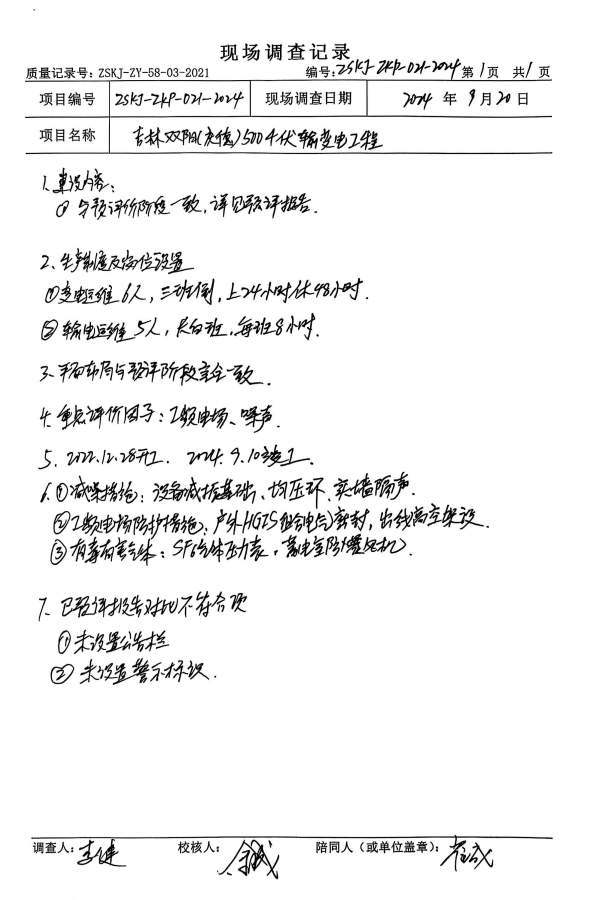 现场调查记录
质量记录号：ZSKJ-ZY-58-03-2021 编号：ZSKJ-ZKP-021-2024 第1页 共1页
项目编号 ZSKJ-ZKP-021-2024 现场调查日期 2024年9月20日
项目名称 吉林双阳(庆德)500千伏输变电工程
1.建设内容：
① 与预评价阶段一致，详见预评报告.
2、生产制度及岗位设置
①变电运维6人，三班倒，上24小时休48小时.
②输电运维5人，长白班，每班8小时.
3、平面布局与预评阶段完全一致.
4、重点评价因子：工频电场、噪声.
5、2022.12.28开工 2024.9.10竣工.
6.①减噪措施：设备减振基础、均压环、实墙隔声.
②工频电场防护措施：户外HGIS组合电气密封，出线高空架设.
③有毒有害气体：SF6气体压力表，蓄电室防爆风机.
7、已预评报告对比不符合项
①未设置公告栏
②未设置警示标识.
调查人： 校核人： 陪同人（或单位盖章）：